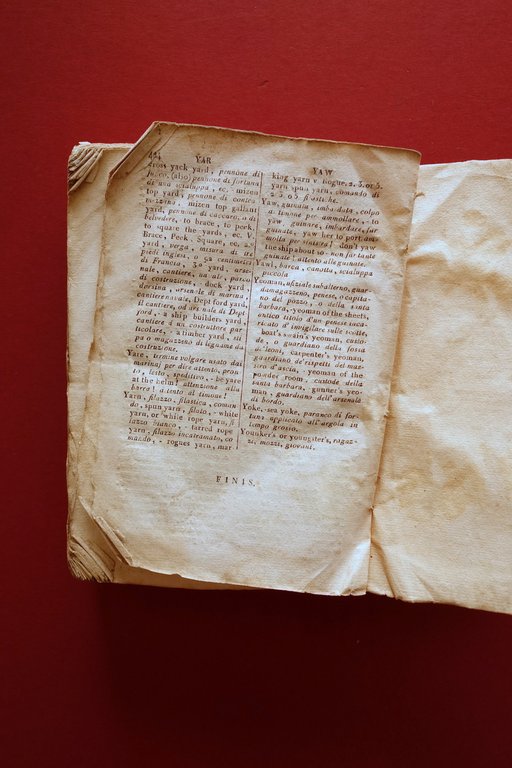 424 YAR
cross yack yard, pennone di
fuoco, (also) pennone di fortuna
di una scialuppa, ec. - mizen
top yard, pennone di contra
mezzana, mizen top gallant
yard, pennone di caccaro, o di
belvedere, to brace, to peek,
to square the yards, ec. V.
Brace, Peek, Square, ec. -
yard, verga, misura di tre
piedi inglesi, o 92 centimetri
di Francia, - yard, arse-
nale, cantiere, na vale, parco
di costruzione, - dock yard,
darsina, arsenale di marina
cantiere navale, Deptford yard,
il cantiere, od arsenale di Dept
ford, - a ship builders yard,
cantiere d'un costruttore par-
ticolare, - a timber yard, sit
o magazzeno di legname da
costruzione.
Yare, termine volgare usato dai
marinaj per dire attento, pron-
to, lesto, speditivo, - be yare
at the helm! attenzione alla
barra! attento al timone!
Yarn, filazzo, filastica, coman
do, spun yarn, filoio, - white
yarn, or white rope yarn, fi
lazzo bianco, - tarred rope
yarn, filazzo incatramato, co
mando, - rogues yarn, mar
YAW
king yarn v. Rogue, 2. 3. or 5.
yarn spun yarn, comando di
2. 3. o 5. filastiche.
Yaw, guinata, imbardata, colpo
di timone per ammollare, - to
yaw, guinare, imbardare, far
guinate, yaw her to port am
molla per sinistra! don't yaw
the ship about so - non far tante
guinate! attento alle guinate,
Yawl, barca, canotta, scialuppa
piccola
Yeoman, ufiziale subalterno, guar-
damagazzeno, penese, o capita-
no del pozzo, o della santa
barbara, - yeoman of the sheets,
antico titolo d'un penese inca-
ricato d'invigilare sulle scotte,
boat's swain's yeoman, custo-
de, o guardiano della fossa
di leoni, carpenter's yeoman,
guardiano de' rispetti del mae-
stro d'ascia, - yeoman of the
powder room, custode della
santa barbara, gunner's yeo-
man, guardiano dell'arsenale
di bordo.
Yoke, sea yoke, paranco di for-
tuna applicato all'argola in
tempo grosso.
Younkers or youngster's, ragaz-
zi, mozzi, giovani.
FINIS.